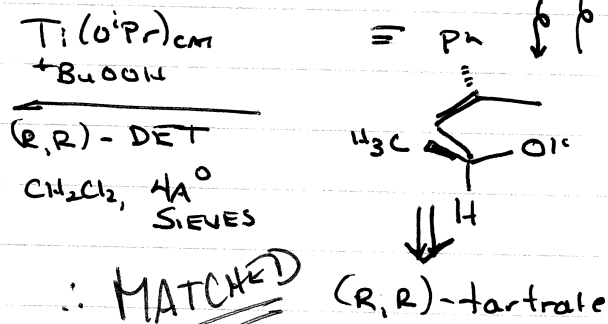 Ti(OiPr)cat
tBuOOH
(R,R)-DET
CH2Cl2, 4Å
SIEVES
∴ MATCHED
=
Ph
H3C
OH
H
(R,R)-tartrate